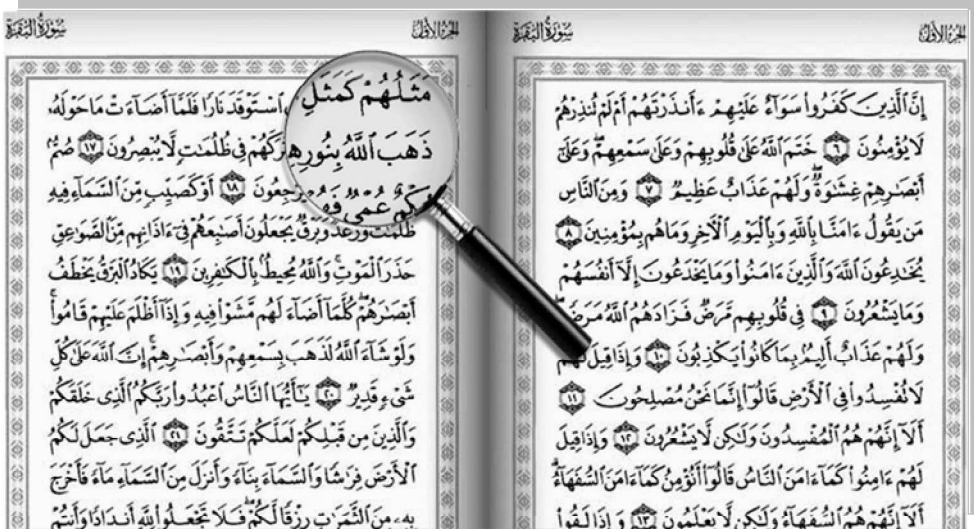 الجزء الأول
سورة البقرة
إِنَّ ٱلَّذِينَ كَفَرُوا۟ سَوَآءٌ عَلَيْهِمْ ءَأَنذَرْتَهُمْ أَمْ لَمْ تُنذِرْهُمْ
لَا يُؤْمِنُونَ ٦ خَتَمَ ٱللَّهُ عَلَىٰ قُلُوبِهِمْ وَعَلَىٰ سَمْعِهِمْ ۖ وَعَلَىٰٓ
أَبْصَـٰرِهِمْ غِشَـٰوَةٌ ۖ وَلَهُمْ عَذَابٌ عَظِيمٌ ٧ وَمِنَ ٱلنَّاسِ
مَن يَقُولُ ءَامَنَّا بِٱللَّهِ وَبِٱلْيَوْمِ ٱلْـَٔاخِرِ وَمَا هُم بِمُؤْمِنِينَ ٨
يُخَـٰدِعُونَ ٱللَّهَ وَٱلَّذِينَ ءَامَنُوا۟ وَمَا يَخْدَعُونَ إِلَّآ أَنفُسَهُمْ
وَمَا يَشْعُرُونَ ٩ فِى قُلُوبِهِم مَّرَضٌ فَزَادَهُمُ ٱللَّهُ مَرَضًا ۖ
وَلَهُمْ عَذَابٌ أَلِيمٌۢ بِمَا كَانُوا۟ يَكْذِبُونَ ١٠ وَإِذَا قِيلَ لَهُمْ
لَا تُفْسِدُوا۟ فِى ٱلْأَرْضِ قَالُوٓا۟ إِنَّمَا نَحْنُ مُصْلِحُونَ ١١
أَلَآ إِنَّهُمْ هُمُ ٱلْمُفْسِدُونَ وَلَـٰكِن لَّا يَشْعُرُونَ ١٢ وَإِذَا قِيلَ
لَهُمْ ءَامِنُوا۟ كَمَآ ءَامَنَ ٱلنَّاسُ قَالُوٓا۟ أَنُؤْمِنُ كَمَآ ءَامَنَ ٱلسُّفَهَآءُ ۗ
أَلَآ إِنَّهُمْ هُمُ ٱلسُّفَهَآءُ وَلَـٰكِن لَّا يَعْلَمُونَ ١٣ وَإِذَا لَقُوا۟
الجزء الأول
سورة البقرة
مَثَلُهُمْ كَمَثَلِ ٱسْتَوْقَدَ نَارًا فَلَمَّآ أَضَآءَتْ مَا حَوْلَهُۥ
ذَهَبَ ٱللَّهُ بِنُورِهِ رَكَهُمْ فِى ظُلُمَـٰتٍ لَّا يُبْصِرُونَ ١٧ صُمٌّۢ
بُكْمٌ عُمْىٌ فَهُمْ يَرْجِعُونَ ١٨ أَوْ كَصَيِّبٍ مِّنَ ٱلسَّمَآءِ فِيهِ
ظُلُمَـٰتٌ وَرَعْدٌ وَبَرْقٌ يَجْعَلُونَ أَصَـٰبِعَهُمْ فِىٓ ءَاذَانِهِم مِّنَ ٱلصَّوَٰعِقِ
حَذَرَ ٱلْمَوْتِ ۚ وَٱللَّهُ مُحِيطٌۢ بِٱلْكَـٰفِرِينَ ١٩ يَكَادُ ٱلْبَرْقُ يَخْطَفُ
أَبْصَـٰرَهُمْ ۖ كُلَّمَآ أَضَآءَ لَهُم مَّشَوْا۟ فِيهِ وَإِذَآ أَظْلَمَ عَلَيْهِمْ قَامُوا۟ ۚ
وَلَوْ شَآءَ ٱللَّهُ لَذَهَبَ بِسَمْعِهِمْ وَأَبْصَـٰرِهِمْ ۚ إِنَّ ٱللَّهَ عَلَىٰ كُلِّ
شَىْءٍ قَدِيرٌ ٢٠ يَـٰٓأَيُّهَا ٱلنَّاسُ ٱعْبُدُوا۟ رَبَّكُمُ ٱلَّذِى خَلَقَكُمْ
وَٱلَّذِينَ مِن قَبْلِكُمْ لَعَلَّكُمْ تَتَّقُونَ ٢١ ٱلَّذِى جَعَلَ لَكُمُ
ٱلْأَرْضَ فِرَٰشًا وَٱلسَّمَآءَ بِنَآءً وَأَنزَلَ مِنَ ٱلسَّمَآءِ مَآءً فَأَخْرَجَ
بِهِۦ مِنَ ٱلثَّمَرَٰتِ رِزْقًا لَّكُمْ ۖ فَلَا تَجْعَلُوا۟ لِلَّهِ أَندَادًا وَأَنتُمْ